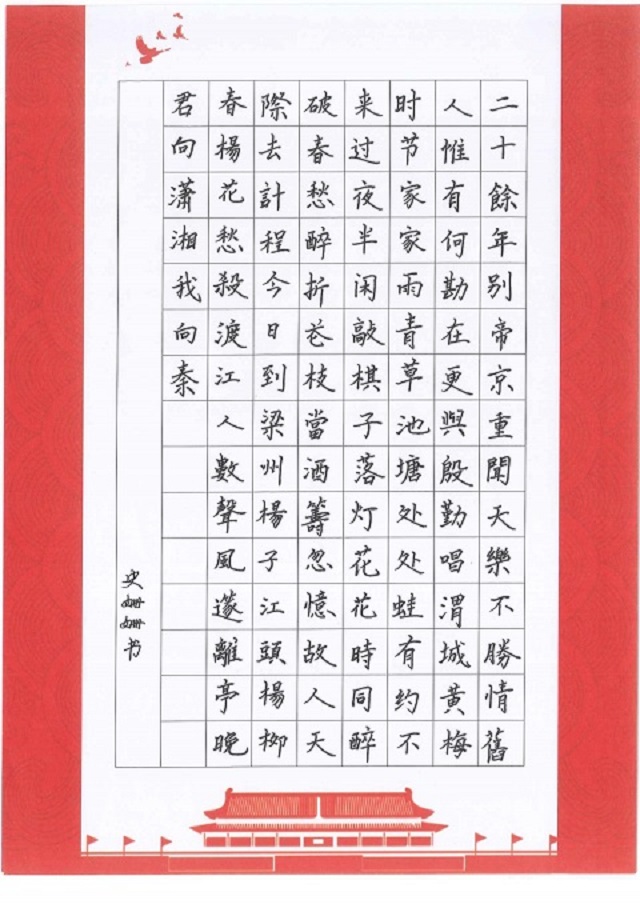 二十餘年别帝京重聞天樂不勝情舊
人惟有何勘在更與殷勤唱渭城黃梅
时节家家雨青草池塘处处蛙有约不
来过夜半闲敲棋子落灯花花時同醉
破春愁醉折芲枝當酒籌忽憶故人天
際去計程今日到梁州楊子江頭楊柳
春楊花愁殺渡江人數聲風邃離亭晚
君向瀟湘我向秦
史姗姗书